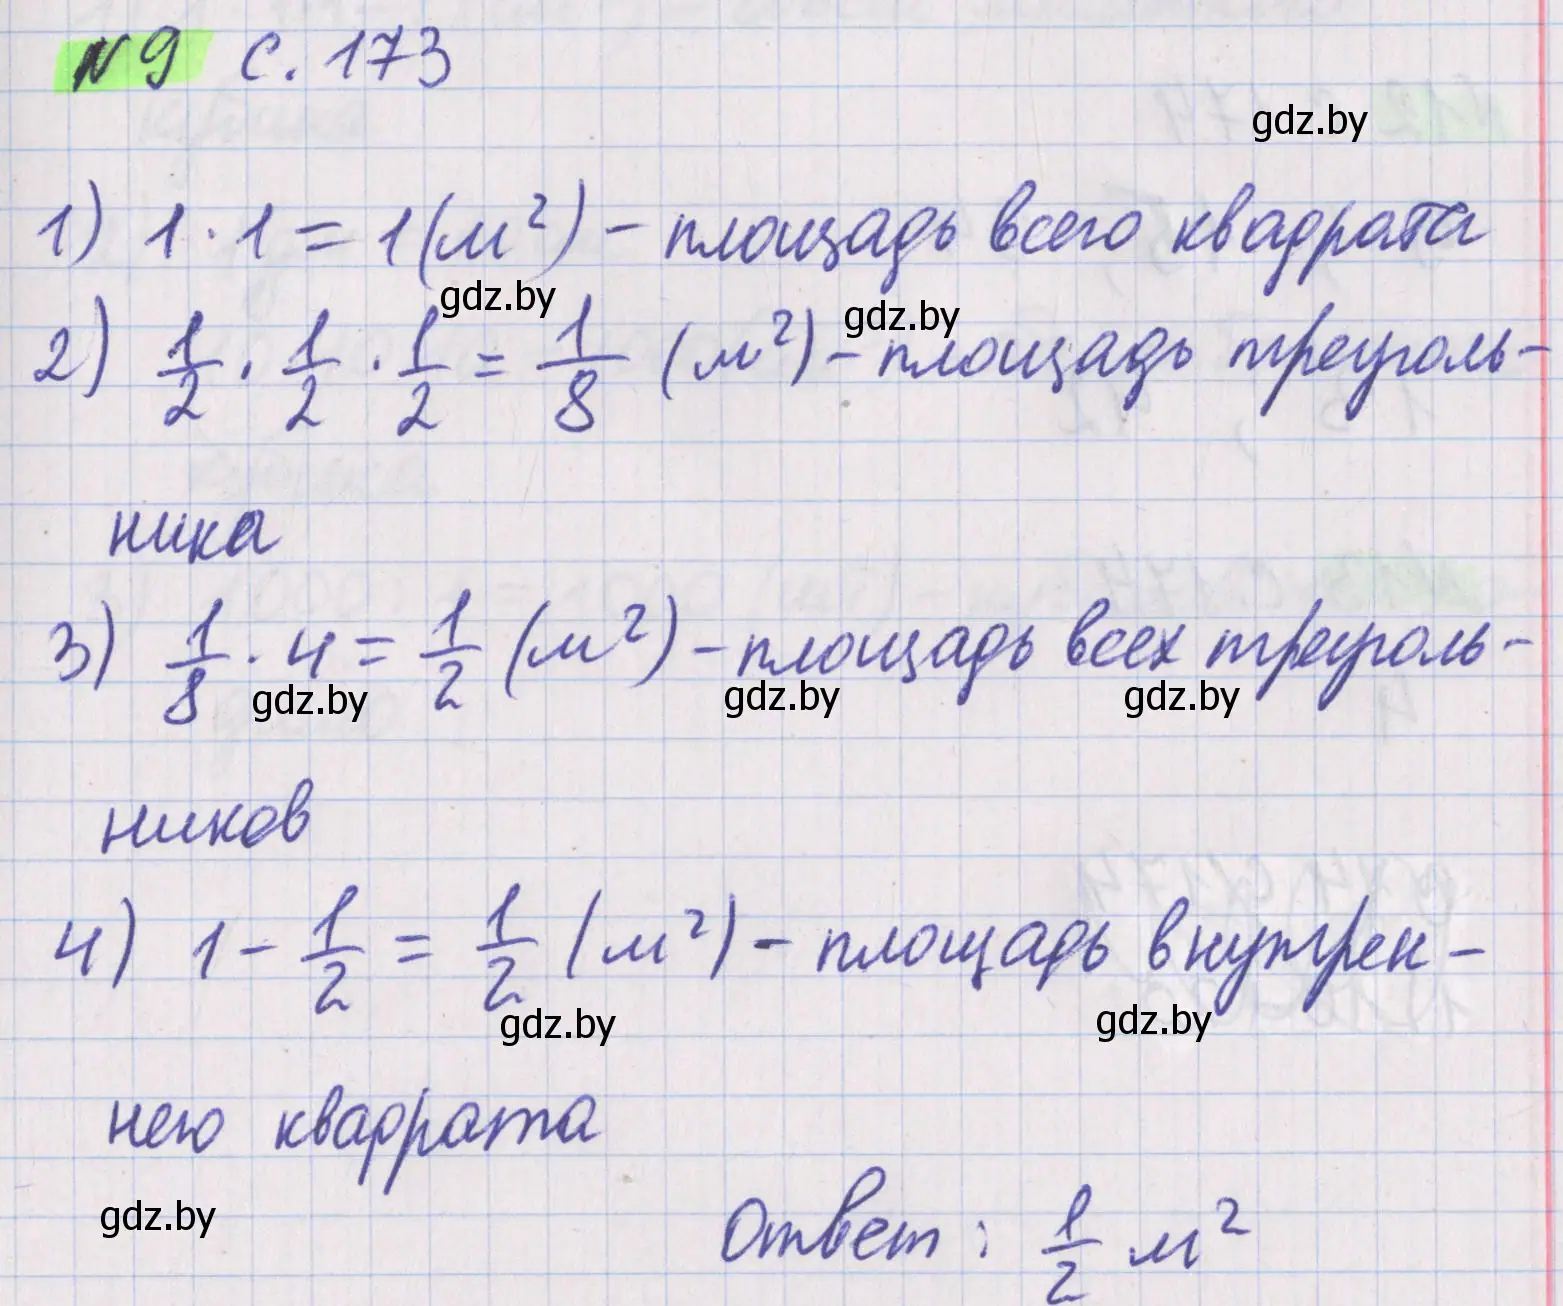 №9 с. 173
gdz.by
1) 1 · 1 = 1 (м²) – площадь всего квадрата
gdz.by gdz.by
2) 1/2 · 1/2 · 1/2 = 1/8 (м²) – площадь треуголь-
ника
3) 1/8 · 4 = 1/2 (м²) – площадь всех треуголь-
gdz.by gdz.by gdz.by
ников
4) 1 – 1/2 = 1/2 (м²) – площадь внутрен-
gdz.by gdz.by
него квадрата
gdz.by
Ответ: 1/2 м²